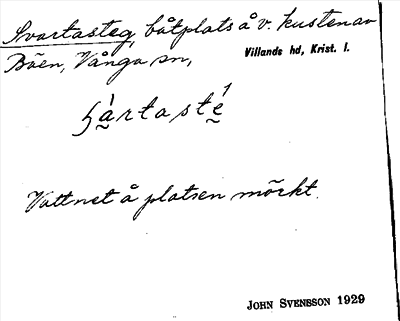 Svartasteg, båtplats å v. kusten av
Böen, Vånga sn,
Villands hd, Krist. l.
Vattnet å platsen mörkt.
JOHN SVENSSON 1929